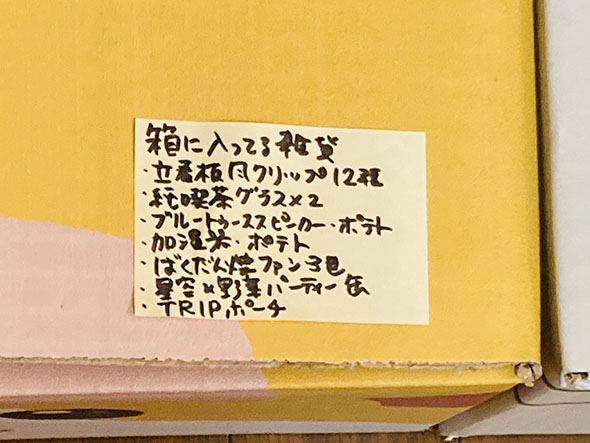 箱に入ってる雑貨
・立看板風クリップ12種
・純喫茶グラス×2
・ブルートゥーススピーカー・ポテト
・加湿器・ポテト
・ばくだん焼ファン3色
・星空×野菜パーティー缶
・TRIPポーチ